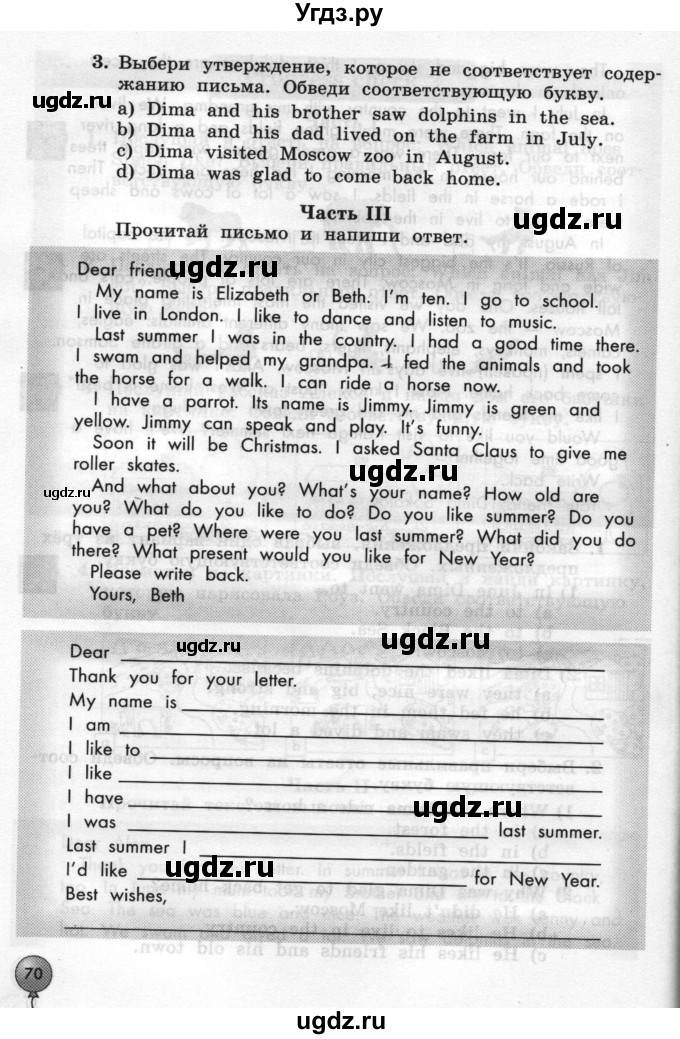 Угдз.ру
3. Выбери утверждение, которое не соответствует содер-
жанию письма. Обведи соответствующую букву.
ugdz.ru
a) Dima and his brother saw dolphins in the sea.
b) Dima and his dad lived on the farm in July.
c) Dima visited Moscow zoo in August.
d) Dima was glad to come back home.
Часть III
ugdz.ru
Прочитай письмо и напиши ответ.
Dear friend,
ugdz.ru
My name is Elizabeth or Beth. I'm ten. I go to school.
I live in London. I like to dance and listen to music.
Last summer I was in the country. I had a good time there.
I swam and helped my grandpa. I fed the animals and took
the horse for a walk. I can ride a horse now.
I have a parrot. Its name is Jimmy. Jimmy is green and
yellow. Jimmy can speak and play. It's funny.
Soon it will be Christmas. I asked Santa Claus to give me
roller skates.
ugdz.ru
ugdz.ru
And what about you? What's your name? How old are
you? What do you like to do? Do you like summer? Do you
have a pet? Where were you last summer? What did you do
there? What present would you like for New Year?
Please write back.
Yours, Beth
ugdz.ru
ugdz.ru
Dear
Thank you for your letter.
My name is
I am
I like to
I like
I have
ugdz.ru
I was last summer.
Last summer I
ugdz.ru
I'd like for New Year.
Best wishes,
70
ugdz.ru